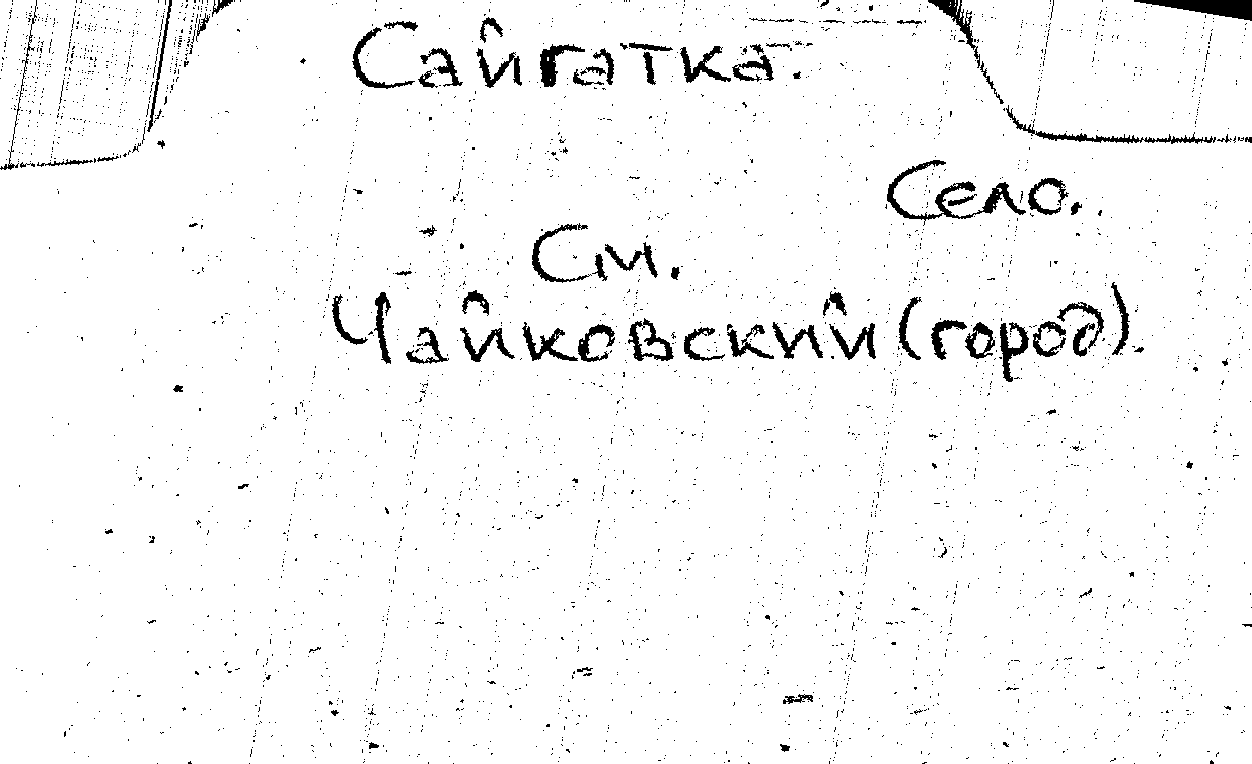 Сайгатка.
Село.
См.
Чайковский (город).